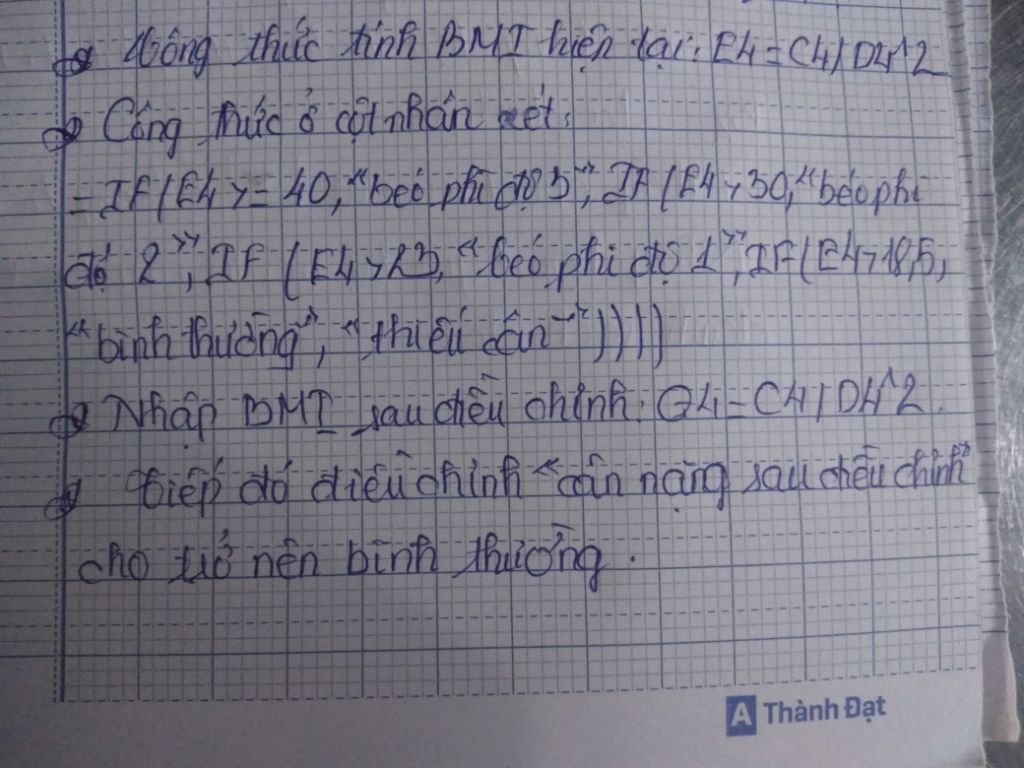 Công thức tính BMI hiện tại: E4=C4/D4^2
Công thức ở cột nhận xét:
=IF(E4>=40,"béo phì độ 3",IF(E4>30,"béo phì
độ 2",IF(E4>23,"béo phì độ 1",IF(E4>18,5,
"bình thường","thiếu cân"))))
Nhập BMI sau điều chỉnh: G4=C4/D4^2.
tiếp đó điều chỉnh "cân nặng sau điều chỉnh"
cho trở nên bình thường.
A Thành Đạt